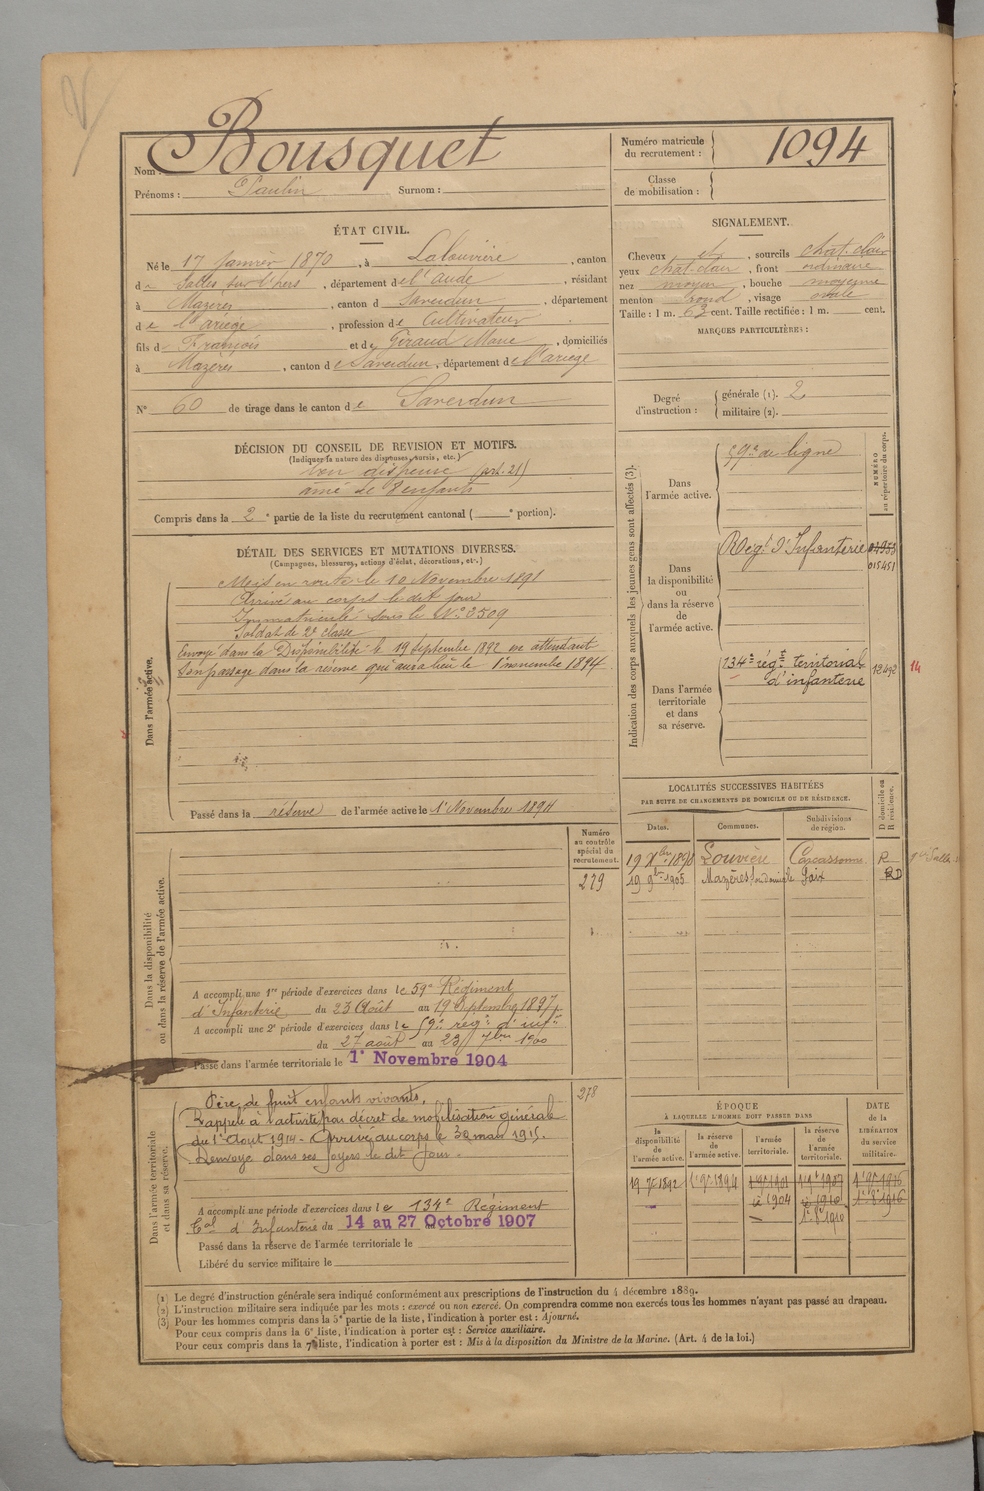 Nom : Bousquet
Prénoms : Paulin Surnom :
Numéro matricule du recrutement : 1094
Classe de mobilisation :
ÉTAT CIVIL.
Né le 17 Janvier 1870, à Lalouvière, canton
de Salles sur l'hers, département de l'aude, résidant
à Mazères, canton d Saverdun, département
de l'ariège, profession de Cultivateur
fils de François et de Giraud Marie, domiciliés
à Mazères, canton de Saverdun, département de l'ariège
N° 60 de tirage dans le canton de Saverdun
SIGNALEMENT.
Cheveux et, sourcils chat. clair
yeux chat. clair, front ordinaire
nez moyen, bouche moyenne
menton rond, visage ovale
Taille : 1 m. 63 cent. Taille rectifiée : 1 m. cent.
MARQUES PARTICULIÈRES :
Degré d'instruction : générale (1). 2
militaire (2).
DÉCISION DU CONSEIL DE REVISION ET MOTIFS.
(Indiquer la nature des dispenses, sursis, etc.)
bon dispensé (art. 21)
aîné de 7 enfants
Compris dans la 2e partie de la liste du recrutement cantonal ( e portion).
DÉTAIL DES SERVICES ET MUTATIONS DIVERSES.
(Campagnes, blessures, actions d'éclat, décorations, etc.)
Dans l'armée active.
Mis en route le 10 Novembre 1891
Arrivé au corps le dit jour
Immatriculé sous le N° 3509
Soldat de 2e classe
Envoyé dans la Disponibilité le 19 septembre 1892 en attendant
son passage dans la réserve qui aura lieu le 1er novembre 1894
Passé dans la réserve de l'armée active le 1er Novembre 1894
Indication des corps auxquels les jeunes gens sont affectés (3).
NUMÉRO au répertoire du corps.
Dans l'armée active.
59e de ligne
Dans la disponibilité ou dans la réserve de l'armée active.
Régt d'Infanterie
015451
Dans l'armée territoriale et dans sa réserve.
134e régt territorial
d'infanterie
12492
14
LOCALITÉS SUCCESSIVES HABITÉES
PAR SUITE DE CHANGEMENTS DE DOMICILE OU DE RÉSIDENCE.
Dates. Communes. Subdivisions de région. D domicile ou R résidence.
19 Xbre 1898 Louvière Carcassonne R
19 9bre 1905 Mazères Foix RD
Numéro au contrôle spécial du recrutement.
279
Dans la disponibilité ou dans la réserve de l'armée active.
A accompli une 1re période d'exercices dans le 59e Régiment
d'Infanterie du 23 Août au 19 Septembre 1897
A accompli une 2e période d'exercices dans le 59e régt d'inftie
du 27 août au 23 7bre 1900
Passé dans l'armée territoriale le 1er Novembre 1904
278
Dans l'armée territoriale et dans sa réserve.
Père de huit enfants vivants.
Rappelé à l'activité par décret de mobilisation générale
du 1er Août 1914 - Arrivé au corps le 30 mars 1915.
Renvoyé dans ses foyers le dit jour.
A accompli une période d'exercices dans le 134e Régiment
Tal d'Infanterie du 14 au 27 Octobre 1907
Passé dans la réserve de l'armée territoriale le
Libéré du service militaire le
ÉPOQUE
À LAQUELLE L'HOMME DOIT PASSER DANS
la disponibilité de l'armée active. la réserve de l'armée active. l'armée territoriale. la réserve de l'armée territoriale.
DATE de la LIBÉRATION du service militaire.
19 7bre 1892 1er 9bre 1894
1904 1910 1916
(1) Le degré d'instruction générale sera indiqué conformément aux prescriptions de l'instruction du 4 décembre 1889.
(2) L'instruction militaire sera indiquée par les mots : exercé ou non exercé. On comprendra comme non exercés tous les hommes n'ayant pas passé au drapeau.
(3) Pour les hommes compris dans la 5e partie de la liste, l'indication à porter est : Ajourné.
Pour ceux compris dans la 6e liste, l'indication à porter est : Service auxiliaire.
Pour ceux compris dans la 7e liste, l'indication à porter est : Mis à la disposition du Ministre de la Marine. (Art. 4 de la loi.)